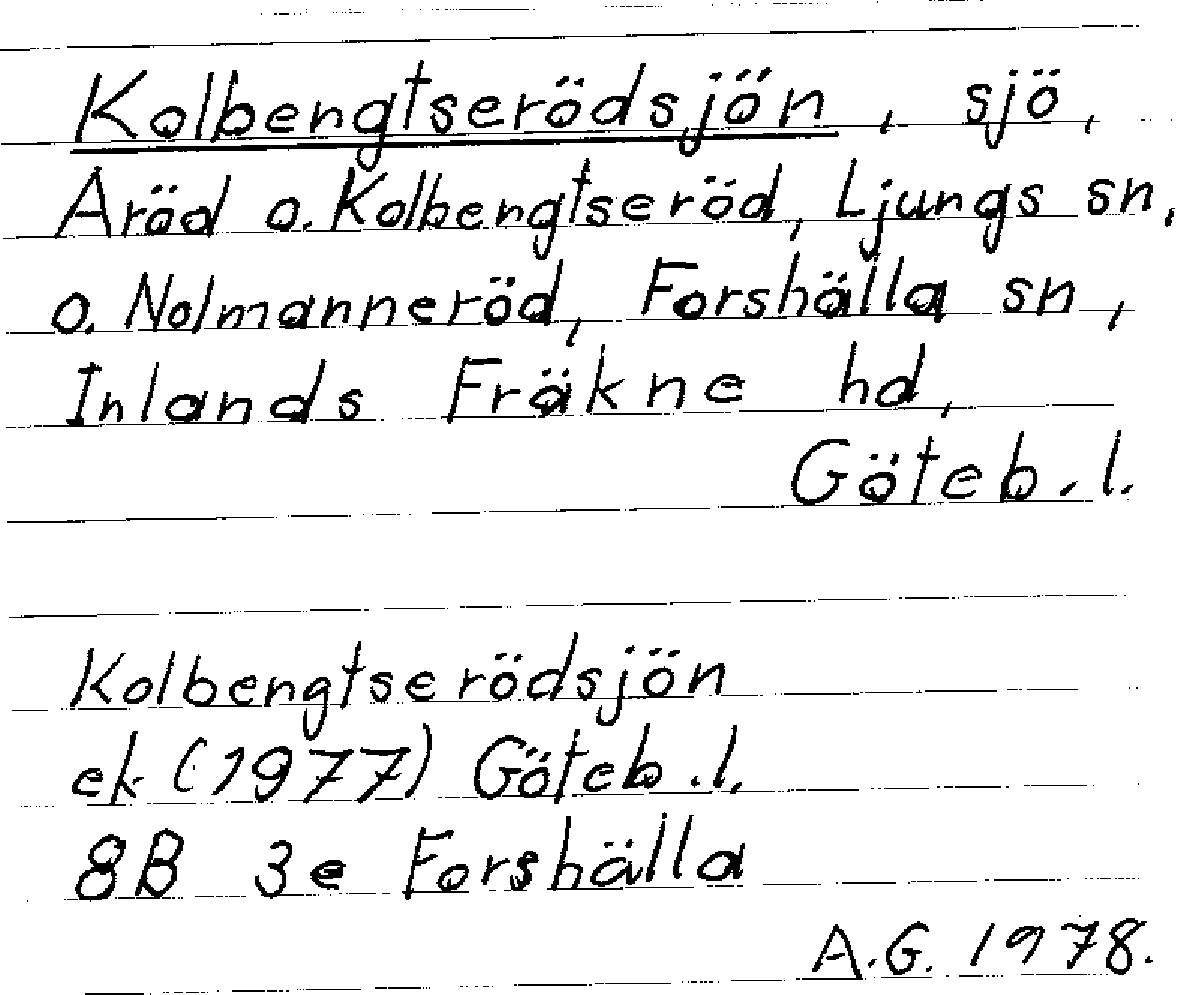 Kolbengtserödsjön, sjö,
Aröd o. Kolbengtseröd, Ljungs sn,
o. Nolmanneröd, Forshälla sn,
Inlands Fräkne hd,
Göteb. l.
Kolbengtserödsjön
ek (1977) Göteb. l.
8B 3e Forshälla
A.G. 1978.